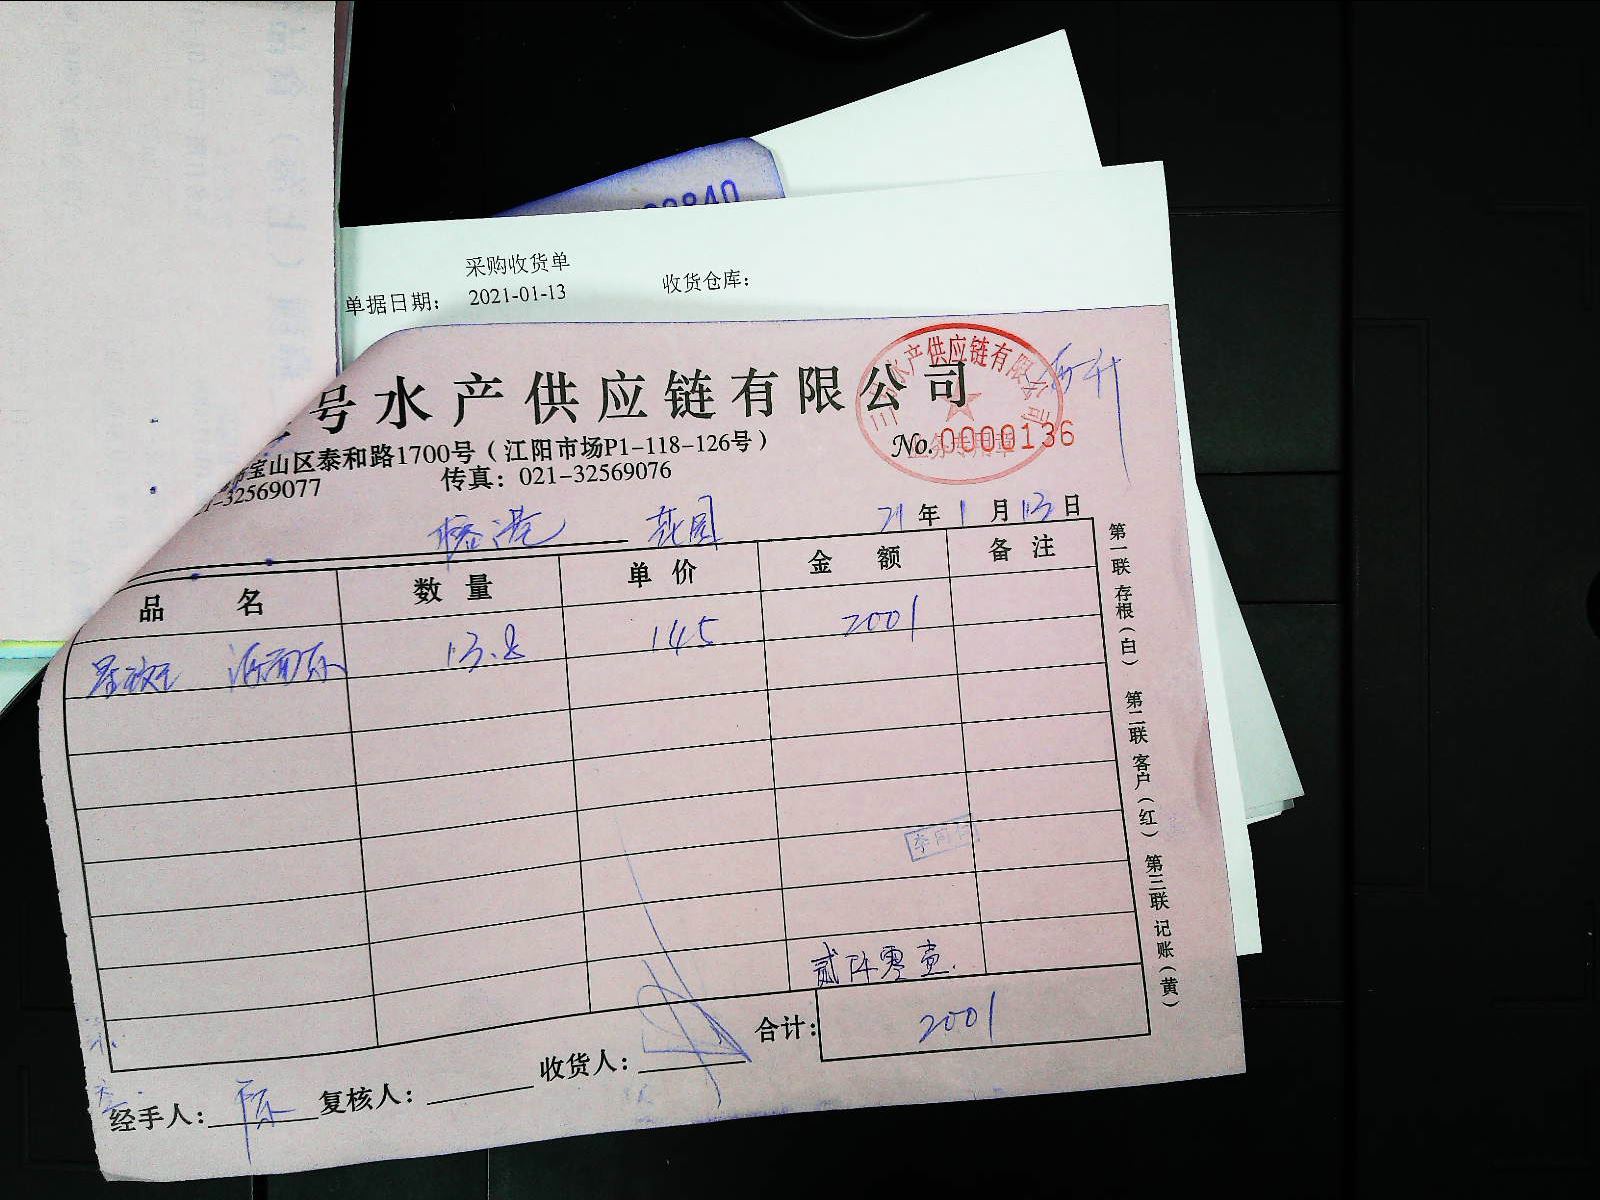 采购收货单
单据日期： 2021-01-13 收货仓库：
号水产供应链有限公司
水产供应链有限公司
业务专用章
No. 0000136
宝山区泰和路1700号（江阳市场P1-118-126号）
-32569077 传真：021-32569076
花园 21 年 1 月 13 日
品 名 数 量 单 价 金 额 备 注
13.8 145 2001
贰仟零壹
合计： 2001
经手人： 复核人： 收货人：
第一联 存根（白） 第二联 客户（红） 第三联 记账（黄）